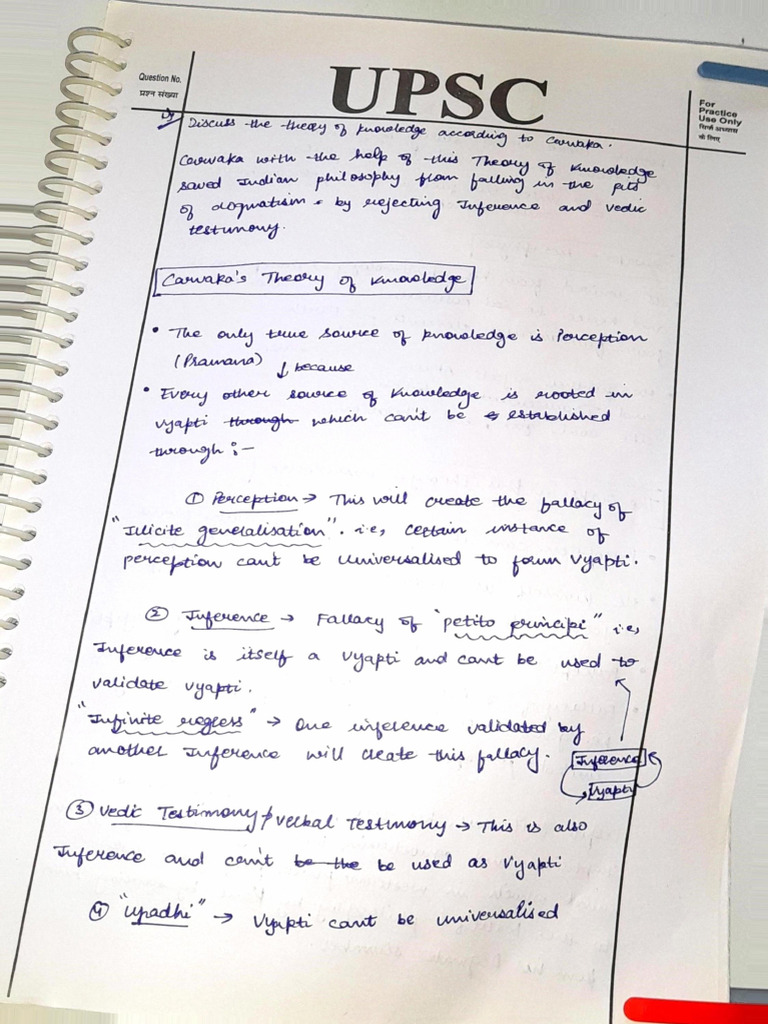 Question No.
प्रश्न संख्या
UPSC
For
Practice
Use Only
सिर्फ अभ्यास
के लिए
Discuss the theory of knowledge according to Carwaka.
Carwaka with the help of this Theory of Knowledge
saved Indian philosophy from falling in the pits
of dogmatism by rejecting Inference and Vedic
testimony.
Carwaka's Theory of Knowledge
• The only true source of knowledge is Perception
(Pramana) ↓ because
• Every other source of knowledge is rooted in
vyapti through which can't be established
through :-
① Perception → This will create the fallacy of
"Illicite generalisation". i.e, certain instance of
perception cant be universalised to form Vyapti.
② Inference → Fallacy of "petito principi" i.e,
Inference is itself a Vyapti and cant be used to
validate vyapti.
"Infinite regress" → One inference validated by
another Inference will create this fallacy.
Inference
Vyapti
③ Vedic Testimony / Verbal Testimony → This is also
Inference and can't be the be used as Vyapti
④ "Upadhi" → Vyapti cant be universalised